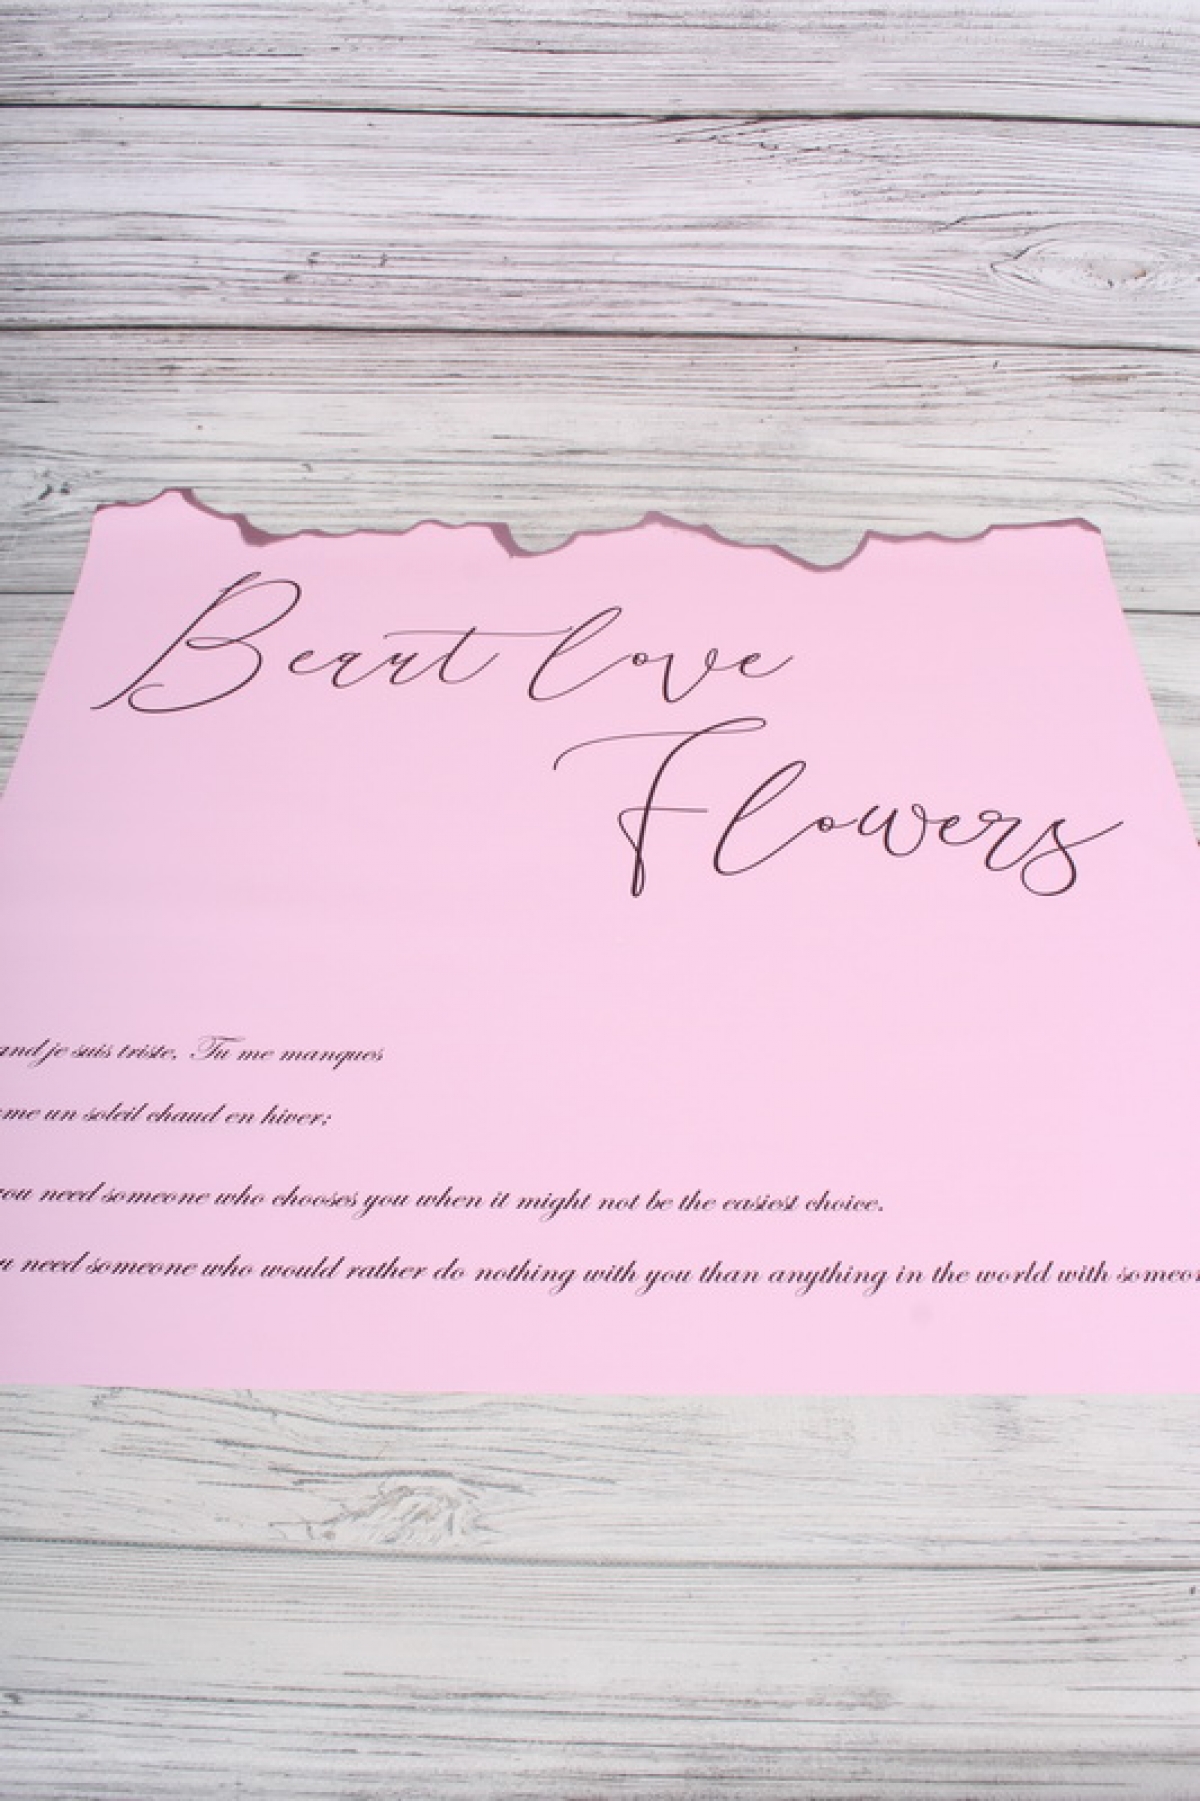 Beaut love
Flowers
and je suis triste. Tu me manques
me un soleil chaud en hiver:
ou need someone who chooses you when it might not be the easiest choice.
u need someone who would rather do nothing with you than anything in the world with someon